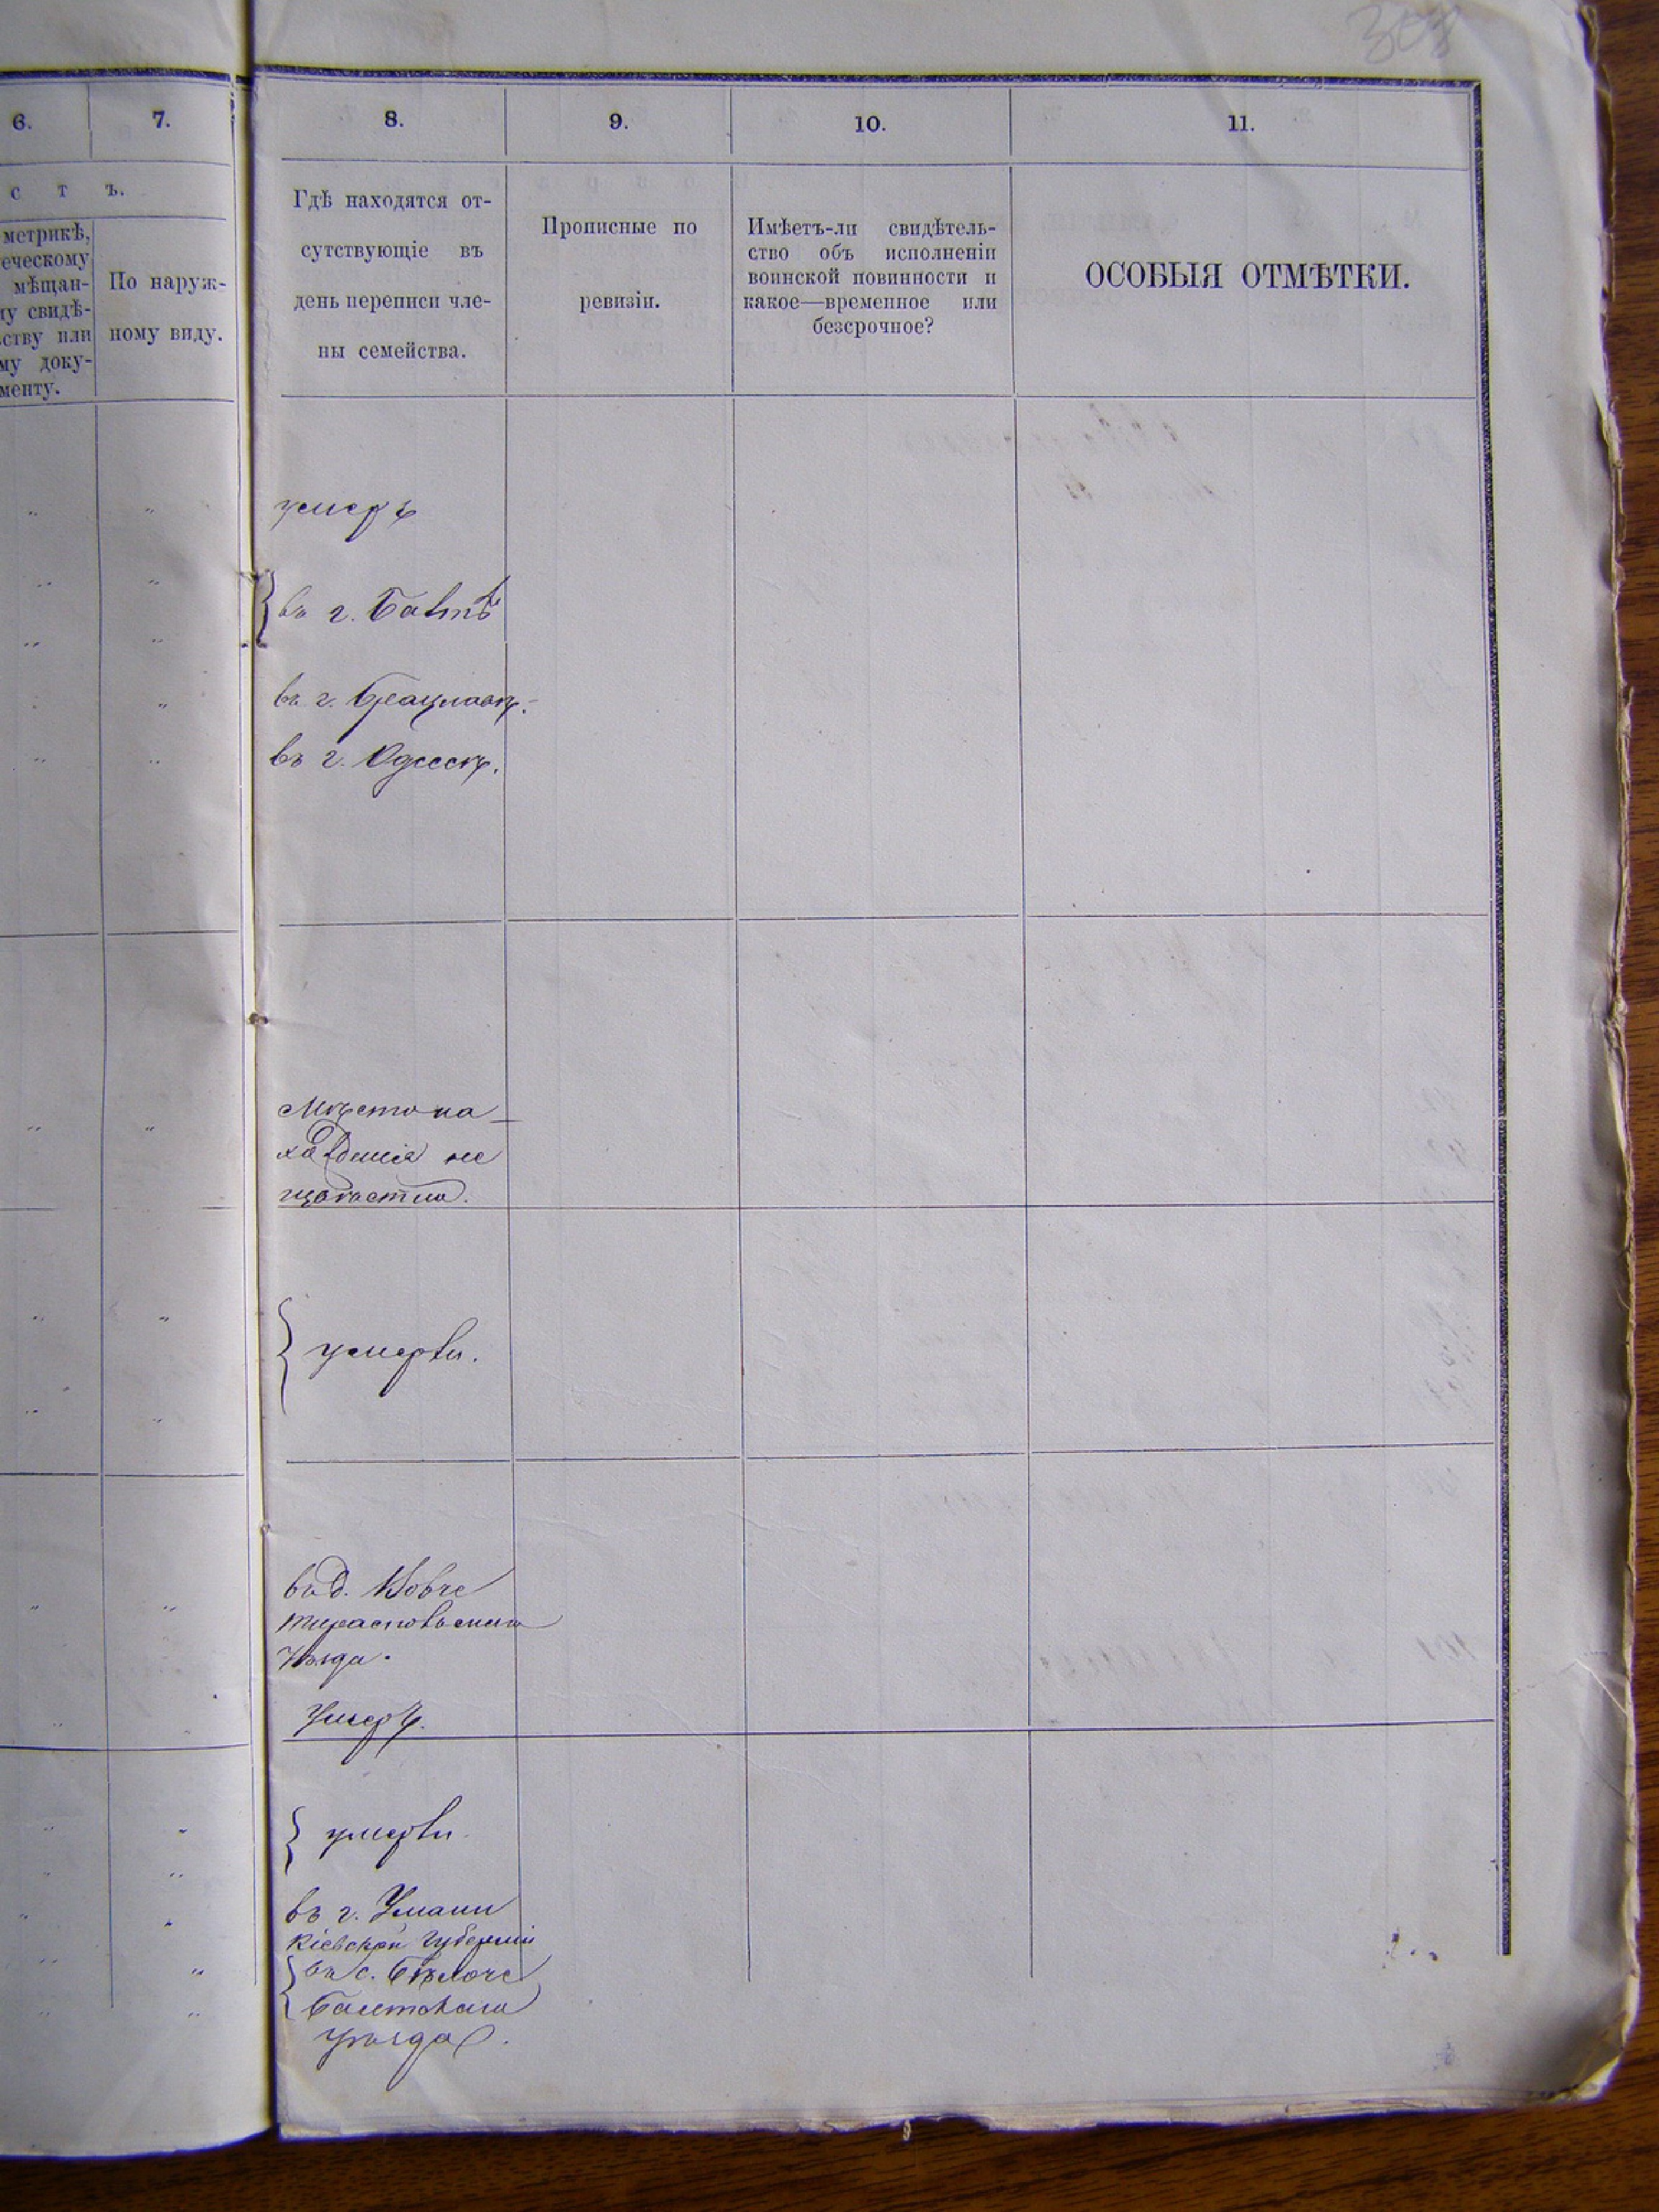 308
6.
7.
с т ъ.
метрикѣ,
еческому
мѣщан-
му свидѣ-
ству или
му доку-
менту.
По наруж-
ному виду.
8.
9.
10.
11.
Гдѣ находятся от-
сутствующіе въ
день переписи чле-
ны семейства.
Прописные по
ревизіи.
Имѣетъ-ли свидѣтель-
ство объ исполненіи
воинской повинности и
какое—временное или
безсрочное?
ОСОБЫЯ ОТМѢТКИ.
умеръ
въ г. Балтѣ
въ г. Брацлавѣ.
въ г. Одессѣ.
Мѣстона-
хожденія не
умерли.
въ д.
Тираспольскаго
Уѣзда.
Умеръ.
умерли
въ г. Умани
Кіевской Губерніи
въ с. Бѣлоче
Балтскаго
уѣзда.